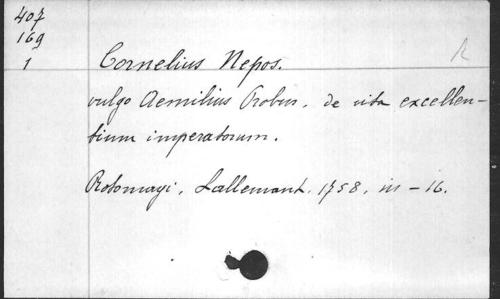 407
169
1
Cornelius Nepos.
vulgo Aemilius Probus, de vita excellen-
tium imperatorum.
Rotomagi, Lallemant, 1758, in-16.